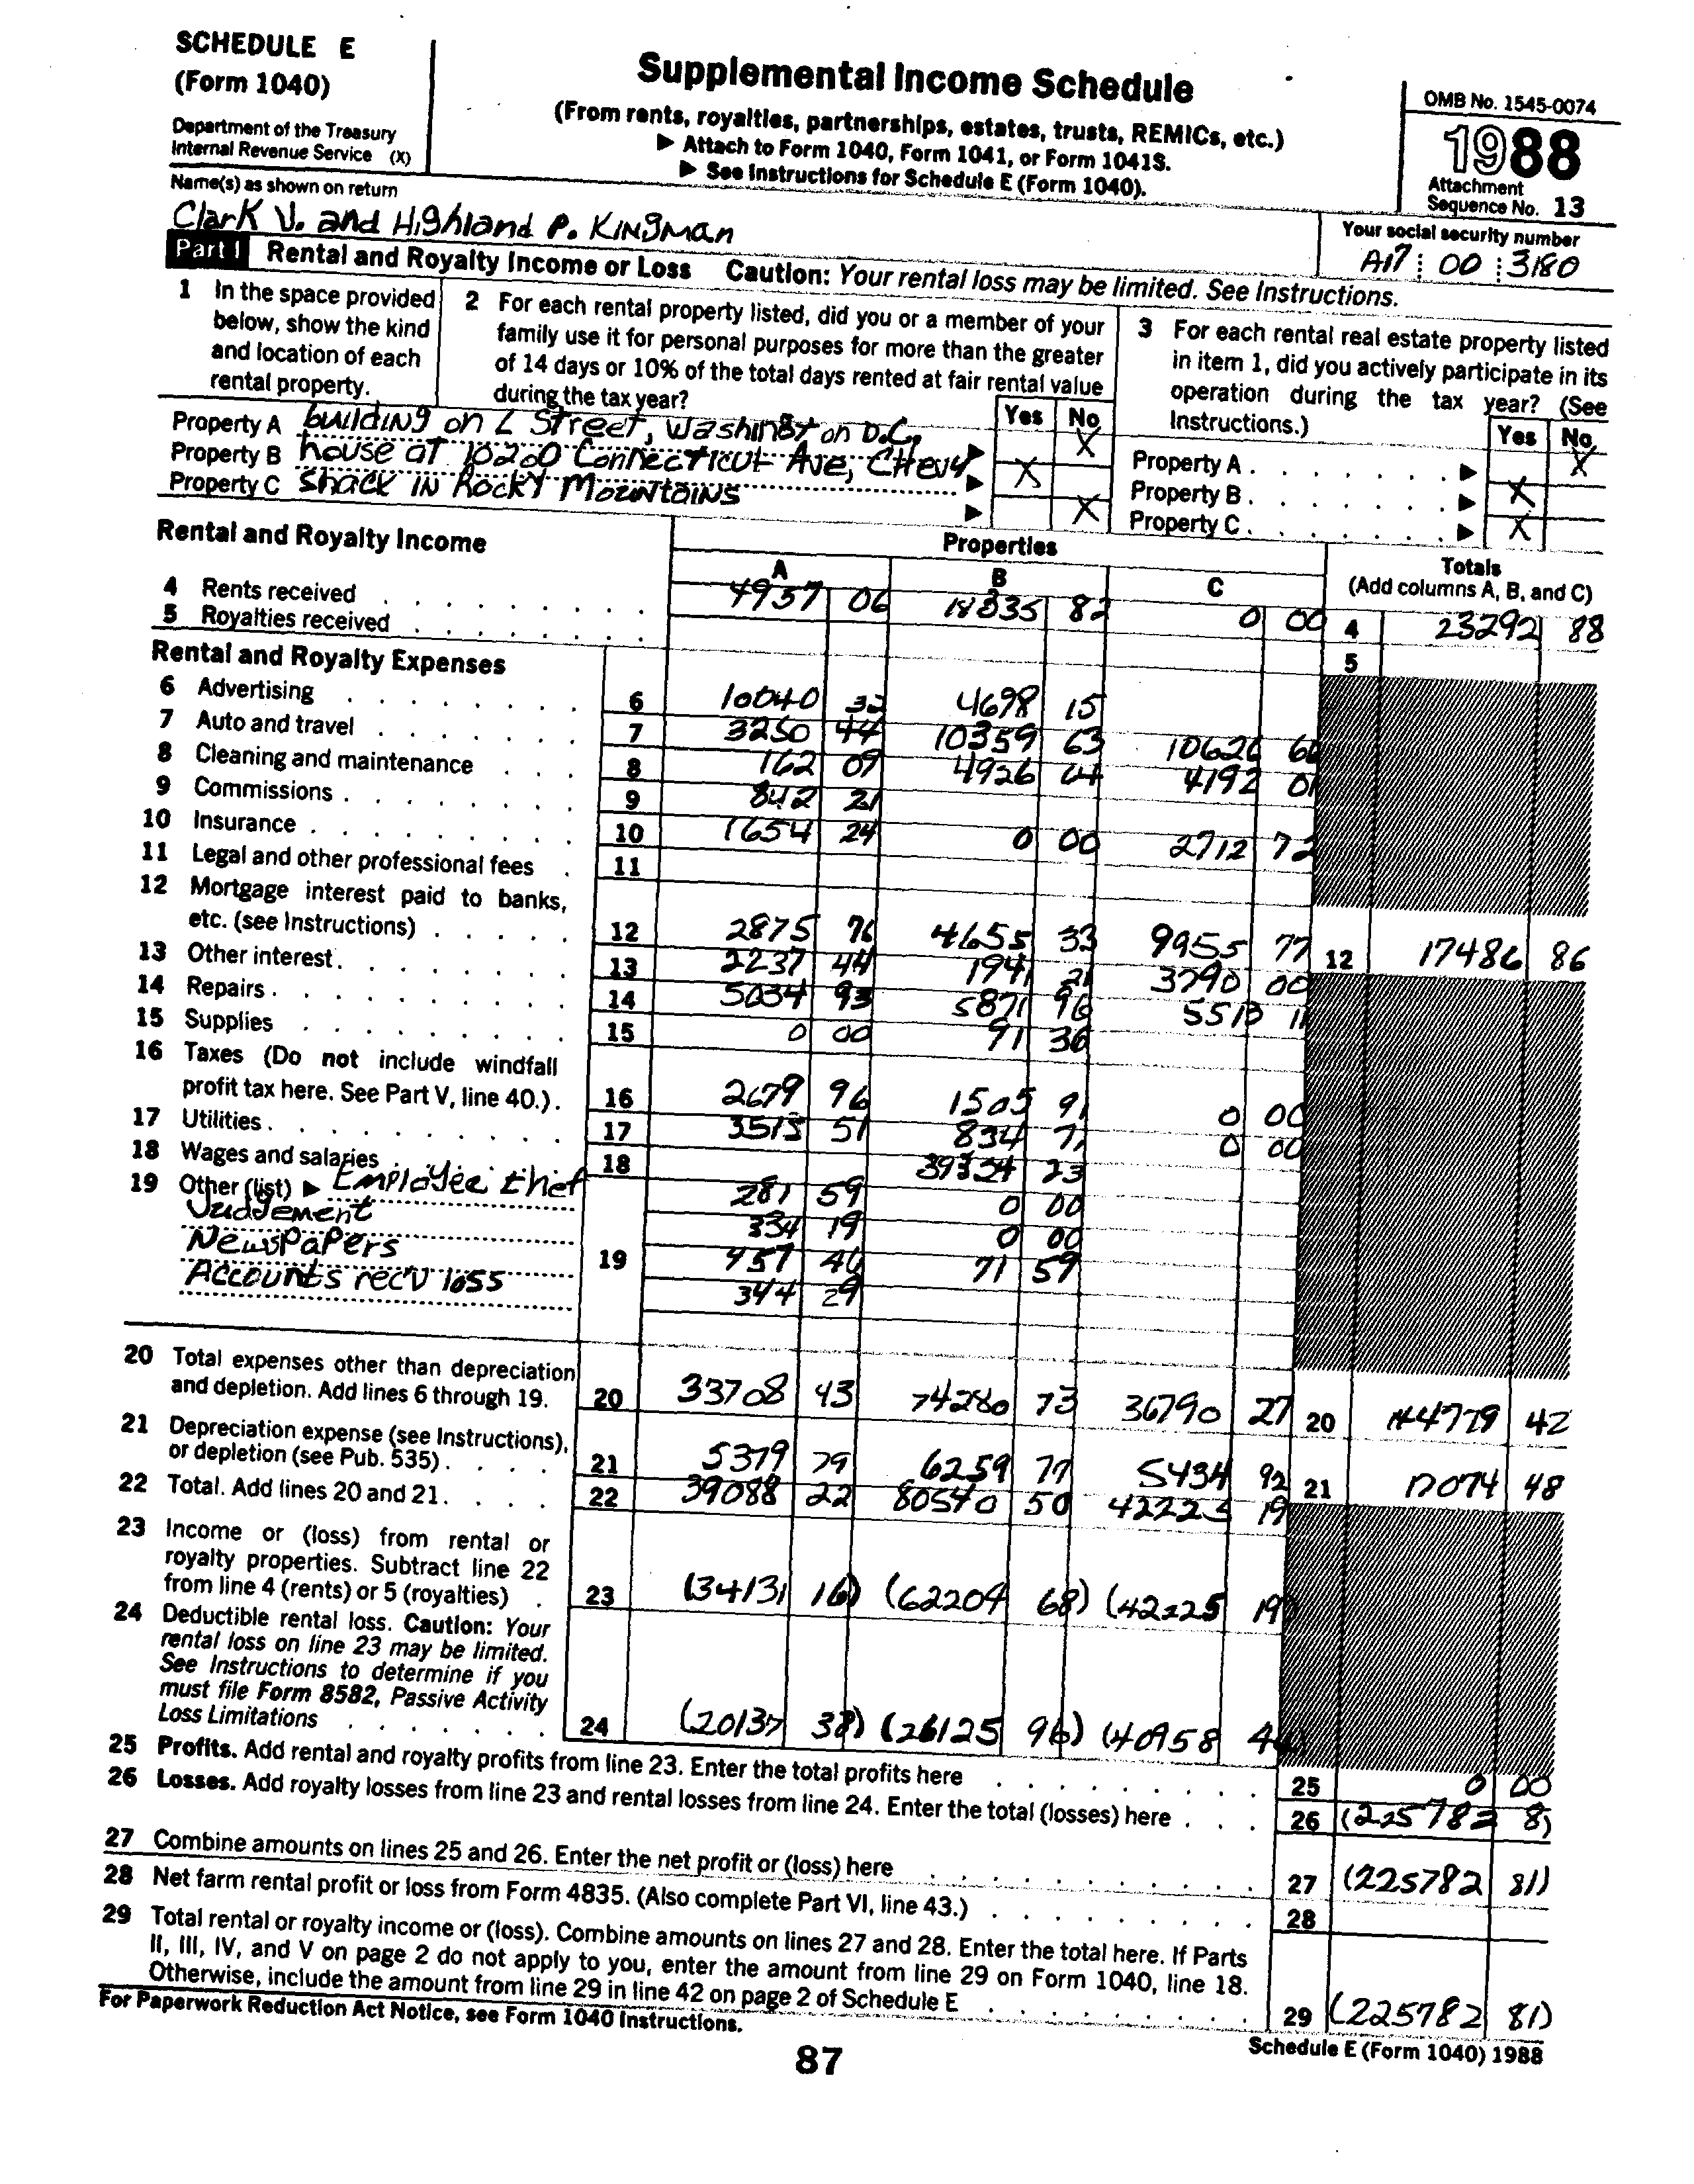 SCHEDULE E
(Form 1040)
Department of the Treasury
Internal Revenue Service (X)
Supplemental Income Schedule
(From rents, royalties, partnerships, estates, trusts, REMICs, etc.)
▶ Attach to Form 1040, Form 1041, or Form 1041S.
▶ See Instructions for Schedule E (Form 1040).
OMB No. 1545-0074
1988
Attachment
Sequence No. 13
Name(s) as shown on return
Clark V. and Highland P. Kingman
Your social security number
A17 00 3180
Part I Rental and Royalty Income or Loss Caution: Your rental loss may be limited. See Instructions.
1 In the space provided below, show the kind and location of each rental property.
2 For each rental property listed, did you or a member of your family use it for personal purposes for more than the greater of 14 days or 10% of the total days rented at fair rental value during the tax year?
3 For each rental real estate property listed in item 1, did you actively participate in its operation during the tax year? (See Instructions.)
Yes No Yes No
Property A building on L Street, Washington D.C. ▶ X Property A ▶ X
Property B house at 10200 Connecticut Ave, Chevy ▶ X Property B ▶ X
Property C Shack in Rocky Mountains ▶ X Property C ▶ X
Rental and Royalty Income
Properties
A B C
Totals
(Add columns A, B, and C)
4 Rents received 4957 06 18335 82 0 00 4 23292 88
5 Royalties received 5
Rental and Royalty Expenses
6 Advertising 6 10040 32 4698 15
7 Auto and travel 7 3250 44 10359 63 10626 66
8 Cleaning and maintenance 8 162 09 4926 64 4192 01
9 Commissions 9 842 21
10 Insurance 10 1654 24 0 00 2712 72
11 Legal and other professional fees 11
12 Mortgage interest paid to banks,
etc. (see Instructions) 12 2875 76 4655 33 9955 77 12 17486 86
13 Other interest 13 2237 44 1941 21 3790 00
14 Repairs 14 5034 93 5871 96 5513 11
15 Supplies 15 0 00 91 36
16 Taxes (Do not include windfall
profit tax here. See Part V, line 40.) 16 2679 96 1505 91 0 00
17 Utilities 17 3513 51 834 71 0 00
18 Wages and salaries 18 39324 23
19 Other (list) ▶ Employee thef 281 59 0 00
Judgement 334 19 0 00
Newspapers 19 457 46 71 59
Accounts recv loss 344 29
20 Total expenses other than depreciation
and depletion. Add lines 6 through 19. 20 33708 43 74280 73 36790 27 20 144779 42
21 Depreciation expense (see Instructions),
or depletion (see Pub. 535) 21 5379 79 6259 77 5434 92 21 17074 48
22 Total. Add lines 20 and 21 22 39088 22 80540 50 42225 19
23 Income or (loss) from rental or
royalty properties. Subtract line 22
from line 4 (rents) or 5 (royalties) 23 (34131 16) (62204 68) (42225 19)
24 Deductible rental loss. Caution: Your
rental loss on line 23 may be limited.
See Instructions to determine if you
must file Form 8582, Passive Activity
Loss Limitations 24 (20137 38) (26125 96) (40958 44)
25 Profits. Add rental and royalty profits from line 23. Enter the total profits here 25 0 00
26 Losses. Add royalty losses from line 23 and rental losses from line 24. Enter the total (losses) here 26 (225782 8)
27 Combine amounts on lines 25 and 26. Enter the net profit or (loss) here 27 (225782 81)
28 Net farm rental profit or loss from Form 4835. (Also complete Part VI, line 43.) 28
29 Total rental or royalty income or (loss). Combine amounts on lines 27 and 28. Enter the total here. If Parts
II, III, IV, and V on page 2 do not apply to you, enter the amount from line 29 on Form 1040, line 18.
Otherwise, include the amount from line 29 in line 42 on page 2 of Schedule E 29 (225782 81)
For Paperwork Reduction Act Notice, see Form 1040 Instructions.
Schedule E (Form 1040) 1988
87